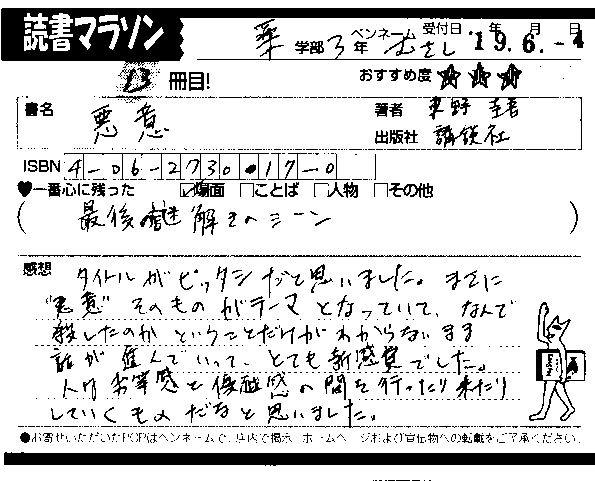 読書マラソン
薬 学部 3 年 ペンネーム むさし 受付日 年 月 日 '19.6.-4
13 冊目! おすすめ度 ★★★
書名 悪意 著者 東野圭吾
出版社 講談社
ISBN 4-06-273017-0
♥一番心に残った ☑場面 □ことば □人物 □その他
( 最後の謎解きのシーン )
感想 タイトルがピッタシだと思いました。まさに
"悪意"そのものがテーマとなっていて、なんで
殺したのかということだけがわからないまま
話が進んでいって、とても新感覚でした。
人は劣等感と優越感の間を行ったり来たり
していくものだなと思いました。
●お寄せいただいたPOPはペンネームで、店内で掲示、ホームページおよび宣伝物への転載をご了承ください。